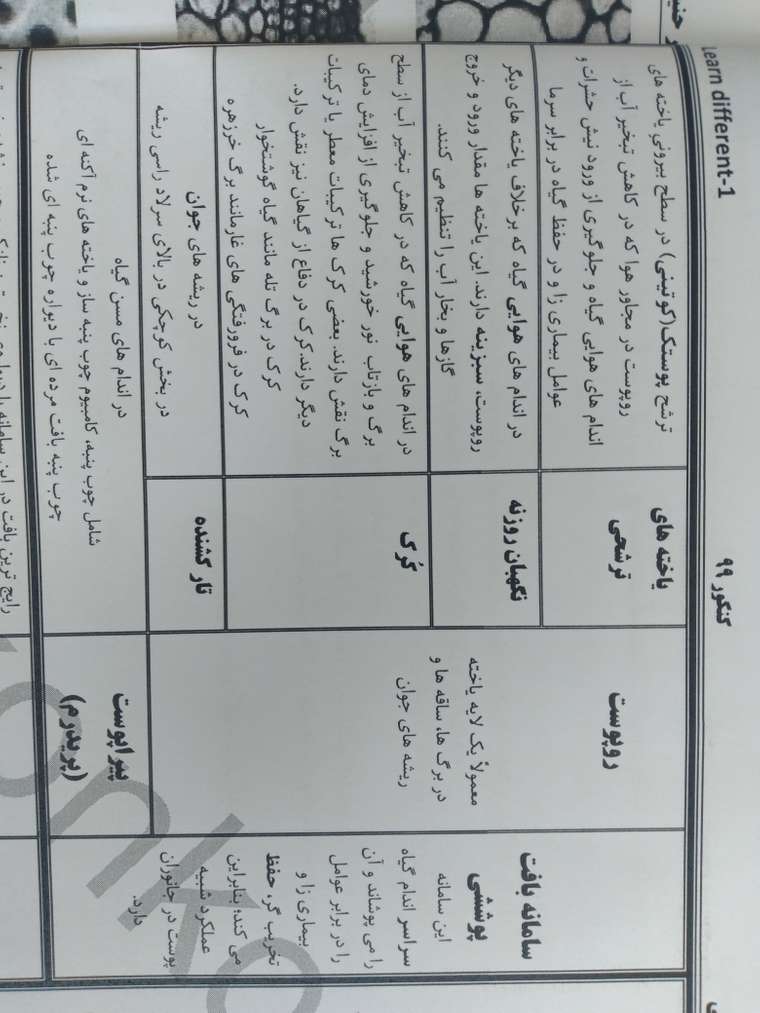 Learn different-1
کنکور ۹۹
سامانه بافت
پوششی
این سامانه
سراسر اندام گیاه
را می پوشاند و آن
را در برابر عوامل
بیماری زا و
تخریب گر، حفظ
می کند؛ بنابراین
عملکرد شبیه
پوست در جانوران
دارد.
روپوست
معمولاً یک لایه یاخته
در برگ ها، ساقه ها و
ریشه های جوان
یاخته های
ترشحی
ترشح پوستک(کوتینی) در سطح بیرونی یاخته های
روپوست در مجاور هوا که در کاهش تبخیر آب از
اندام های هوایی گیاه و جلوگیری از ورود نیش حشرات و
عوامل بیماری زا و در حفظ گیاه در برابر سرما
نگهبان روزنه
در اندام های هوایی گیاه که برخلاف یاخته های دیگر
روپوست، سبزینه دارند. این یاخته ها مقدار ورود و خروج
گازها و بخار آب را تنظیم می کنند.
کُرک
در اندام های هوایی گیاه که در کاهش تبخیر آب از سطح
برگ و بازتاب نور خورشید و جلوگیری از افزایش دمای
برگ نقش دارند. بعضی کرک ها ترکیبات معطر یا ترکیبات
دیگر دارند.کرک در دفاع از گیاهان نیز نقش دارد.
کرک در برگ تله مانند گیاه گوشتخوار
کرک در فرورفتگی های غارمانند برگ خرزهره
تار کشنده
در ریشه های جوان
در بخش کوچکی در بالای سرلاد راسی ریشه
پیراپوست
(پریدرم)
در اندام های مسن گیاه
شامل چوب پنبه، کامبیوم چوب پنبه ساز و یاخته های نرم آکنه ای
چوب پنبه بافت مرده ای با دیواره چوب پنبه ای شده